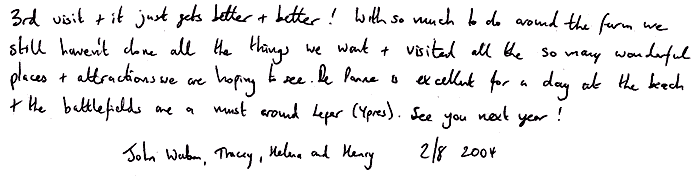 3rd visit + it just gets better + better! With so much to do around the farm we
still haven't done all the things we want + visited all the so many wonderful
places + attractions we are hoping to see. De Panne is excellent for a day at the beach
+ the battlefields are a must around Ieper (Ypres). See you next year!
John, Tracey, Helena and Henry 2/8 2004